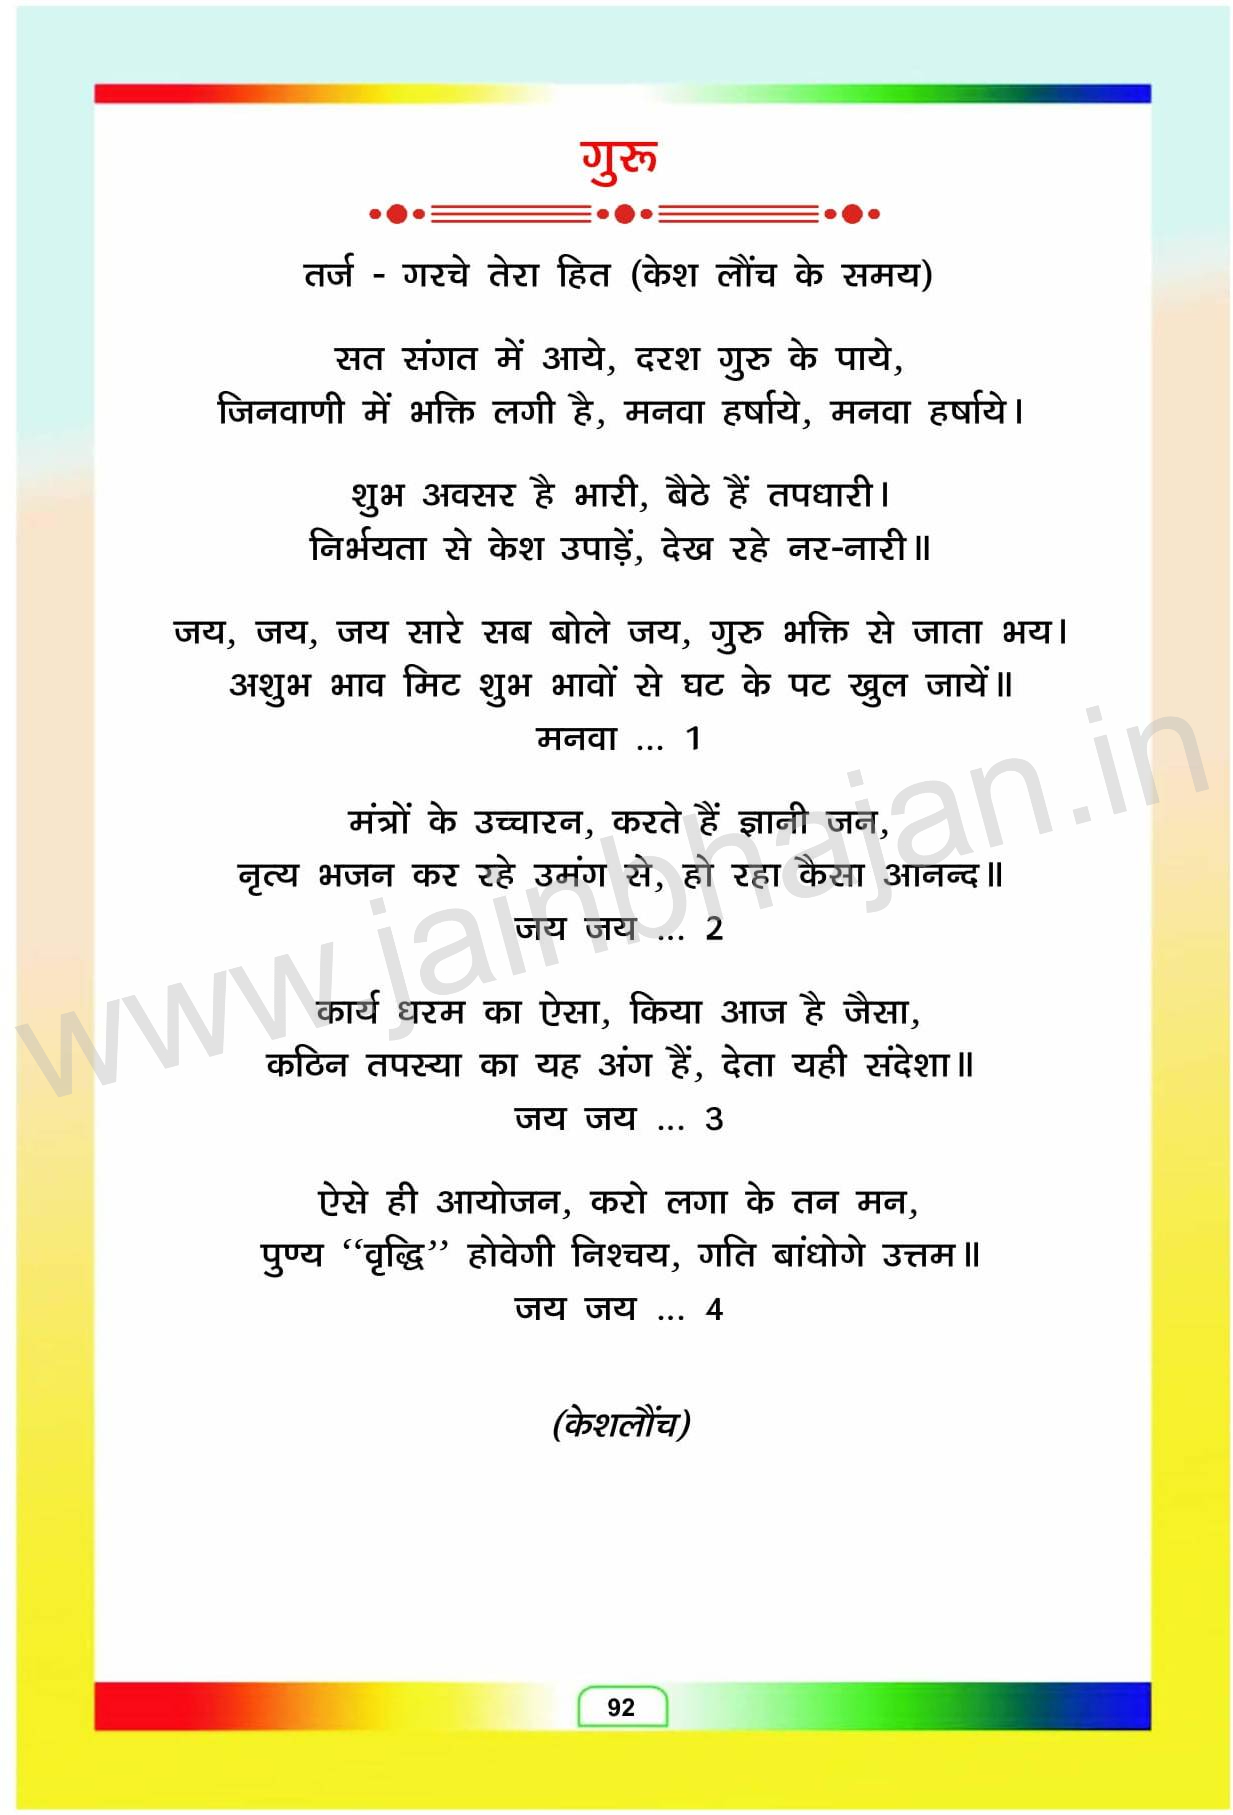 गुरू
तर्ज - गरचे तेरा हित (केश लौंच के समय)
सत संगत में आये, दरश गुरु के पाये,
जिनवाणी में भक्ति लगी है, मनवा हर्षाये, मनवा हर्षाये।
शुभ अवसर है भारी, बैठे हैं तपधारी।
निर्भयता से केश उपाड़ें, देख रहे नर-नारी॥
जय, जय, जय सारे सब बोले जय, गुरु भक्ति से जाता भय।
अशुभ भाव मिट शुभ भावों से घट के पट खुल जायें॥
मनवा ... 1
मंत्रों के उच्चारन, करते हैं ज्ञानी जन,
नृत्य भजन कर रहे उमंग से, हो रहा कैसा आनन्द॥
जय जय ... 2
कार्य धरम का ऐसा, किया आज है जैसा,
कठिन तपस्या का यह अंग हैं, देता यही संदेशा॥
जय जय ... 3
ऐसे ही आयोजन, करो लगा के तन मन,
पुण्य ‘‘वृद्धि’’ होवेगी निश्चय, गति बांधोगे उत्तम॥
जय जय ... 4
(केशलौंच)
92
www.jainbhajan.in